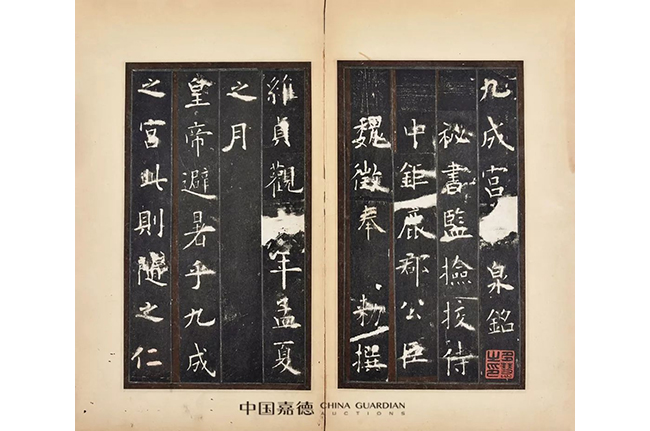 九成宮泉銘
祕書監撿挍侍
中鉅鹿郡公臣
魏徵奉 勅撰
維貞觀年孟夏
之月
皇帝避暑乎九成
之宮此則隨之仁
中国嘉德 CHINA GUARDIAN
AUCTIONS